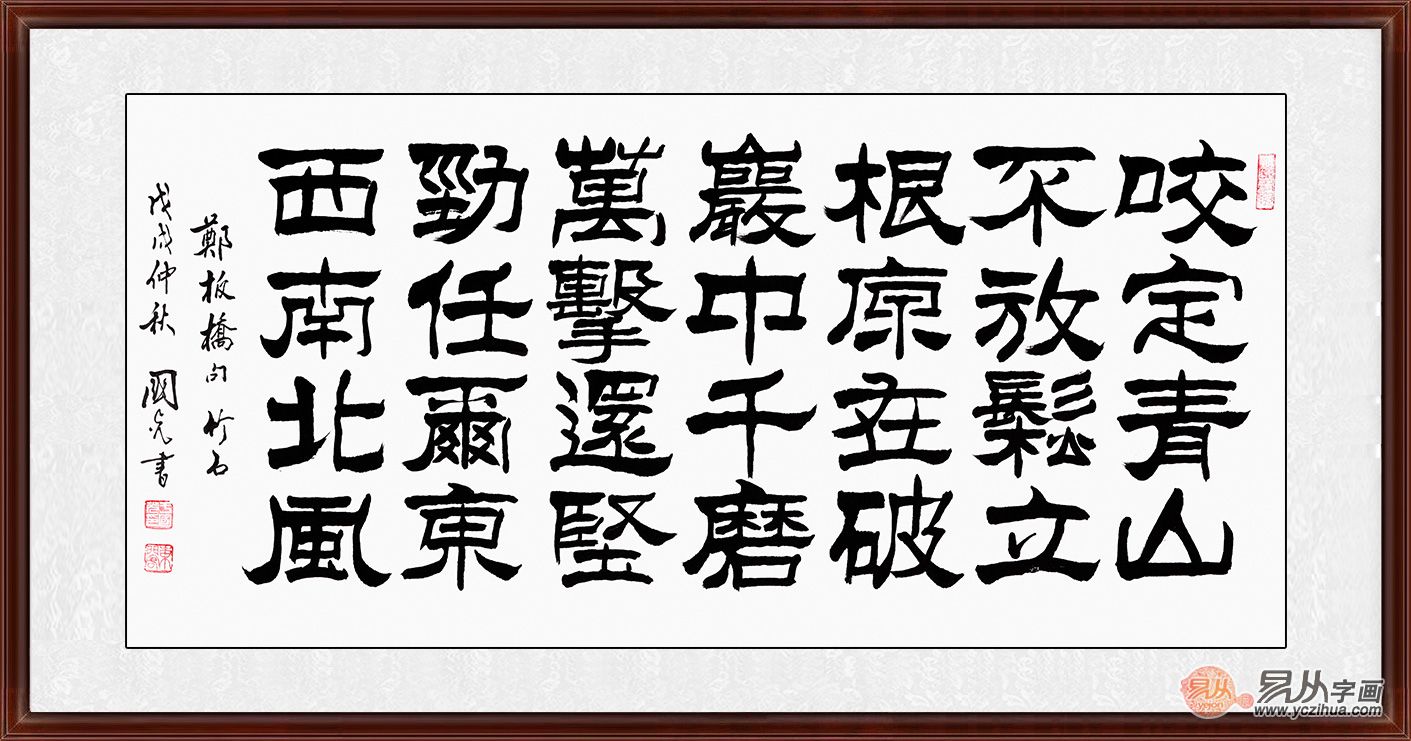 咬定青山
不放鬆立
根原在破
巖中千磨
萬擊還堅
勁任爾東
西南北風
鄭板橋句竹石
戊戌仲秋 書
易从
易从字画
www.yczihua.com